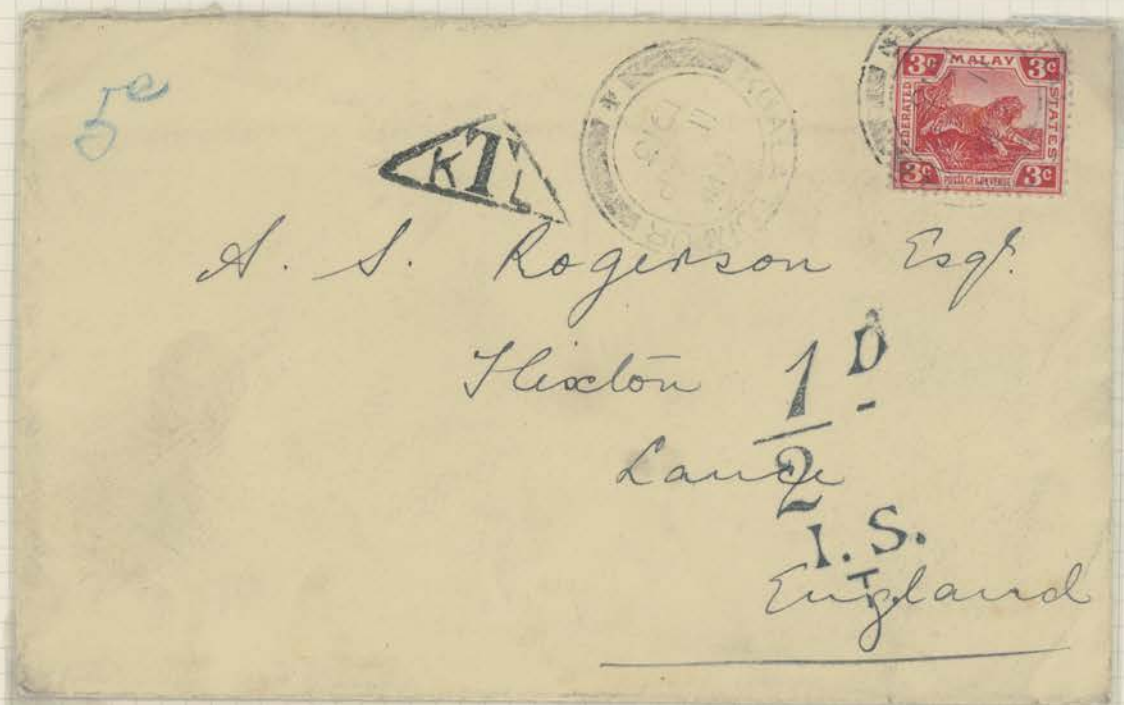 5c
K T L
KUALA LUMPUR
3c MALAY 3c
FEDERATED
STATES
3c POSTAGE & REVENUE 3c
A. S. Rogerson Esqr.
Flixton
1/2 D
Lancs
I. S.
T.
England